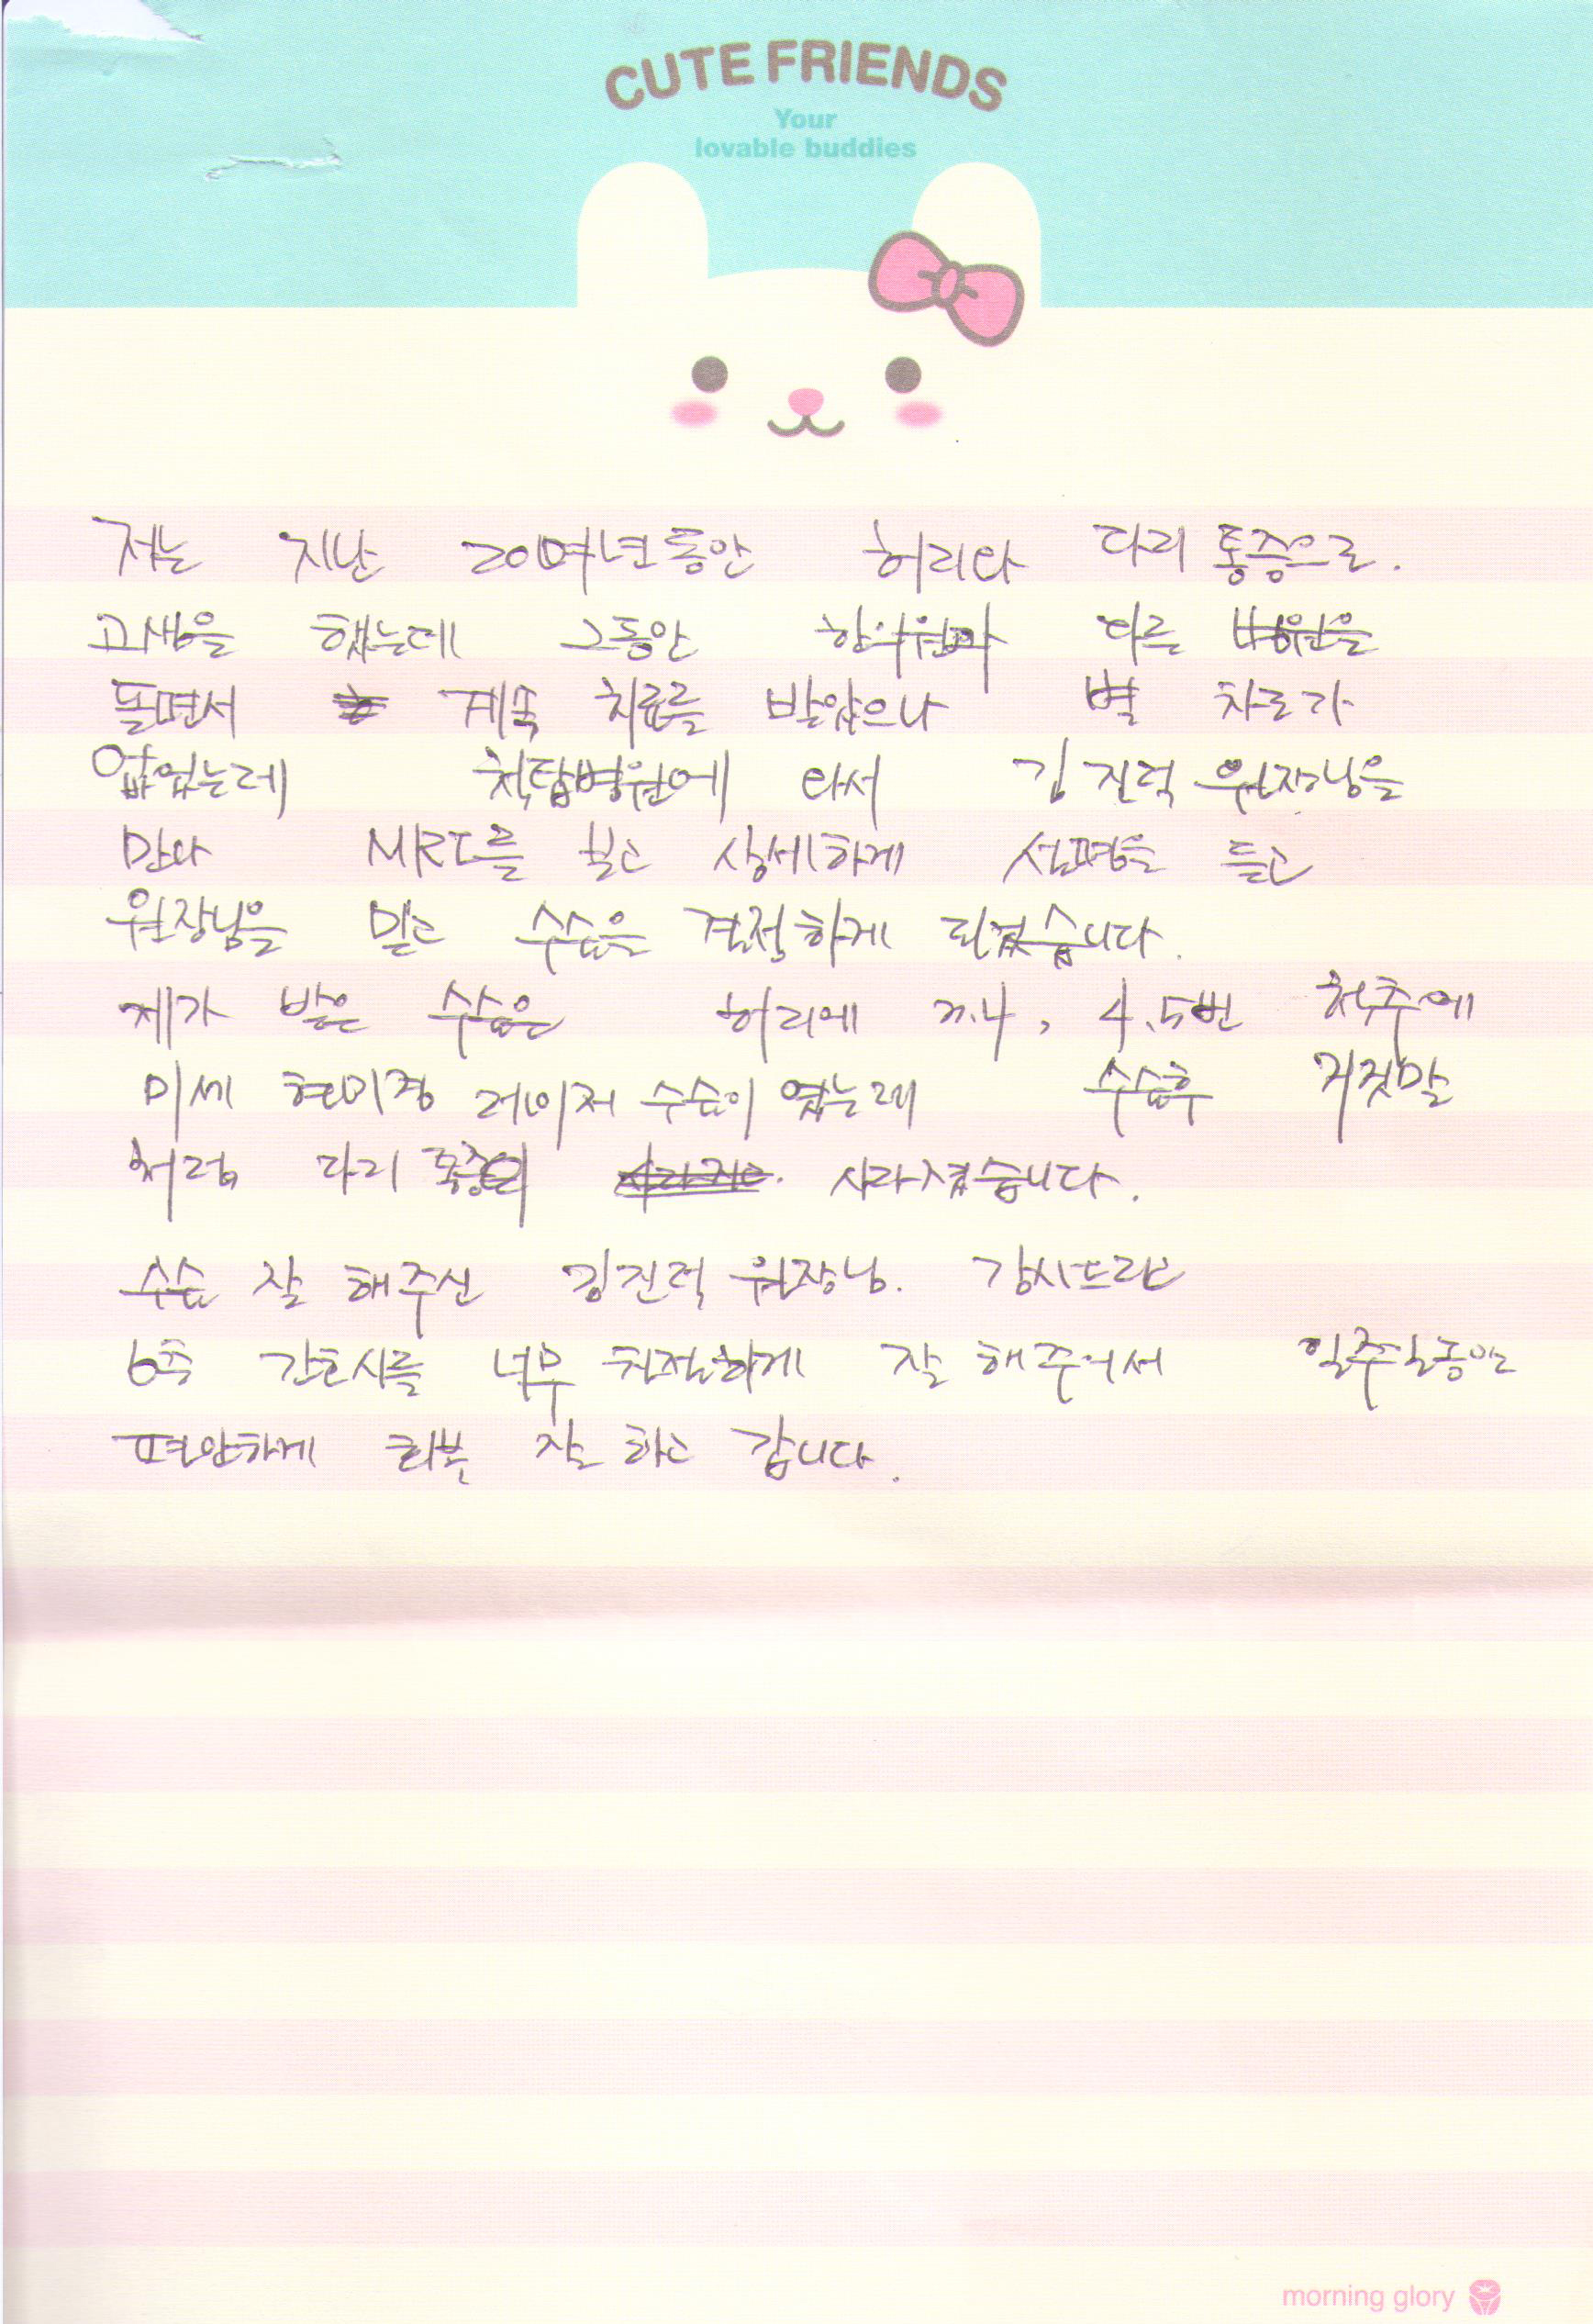 CUTE FRIENDS
Your
lovable buddies
저는 지난 20여년동안 허리와 다리 통증으로.
고생을 했는데 그동안 한의원과 다른 병원을
돌면서 계속 치료를 받았으나 별 차도가
없었는데 척탑병원에 와서 김진덕 원장님을
만나 MRI를 찍고 상세하게 설명을 듣고
원장님을 믿고 수술을 결정하게 되었습니다.
제가 받은 수술은 허리에 3.4, 4.5번 척추에
미세 현미경 레이저 수술이 였는데 수술후 거짓말
처럼 다리 통증이 사라졌습니다.
수술 잘 해주신 김진덕 원장님. 감사드리고
6층 간호사를 너무 친절하게 잘 해주어서 일주일동안
편안하게 회복 잘 하고 갑니다.
morning glory